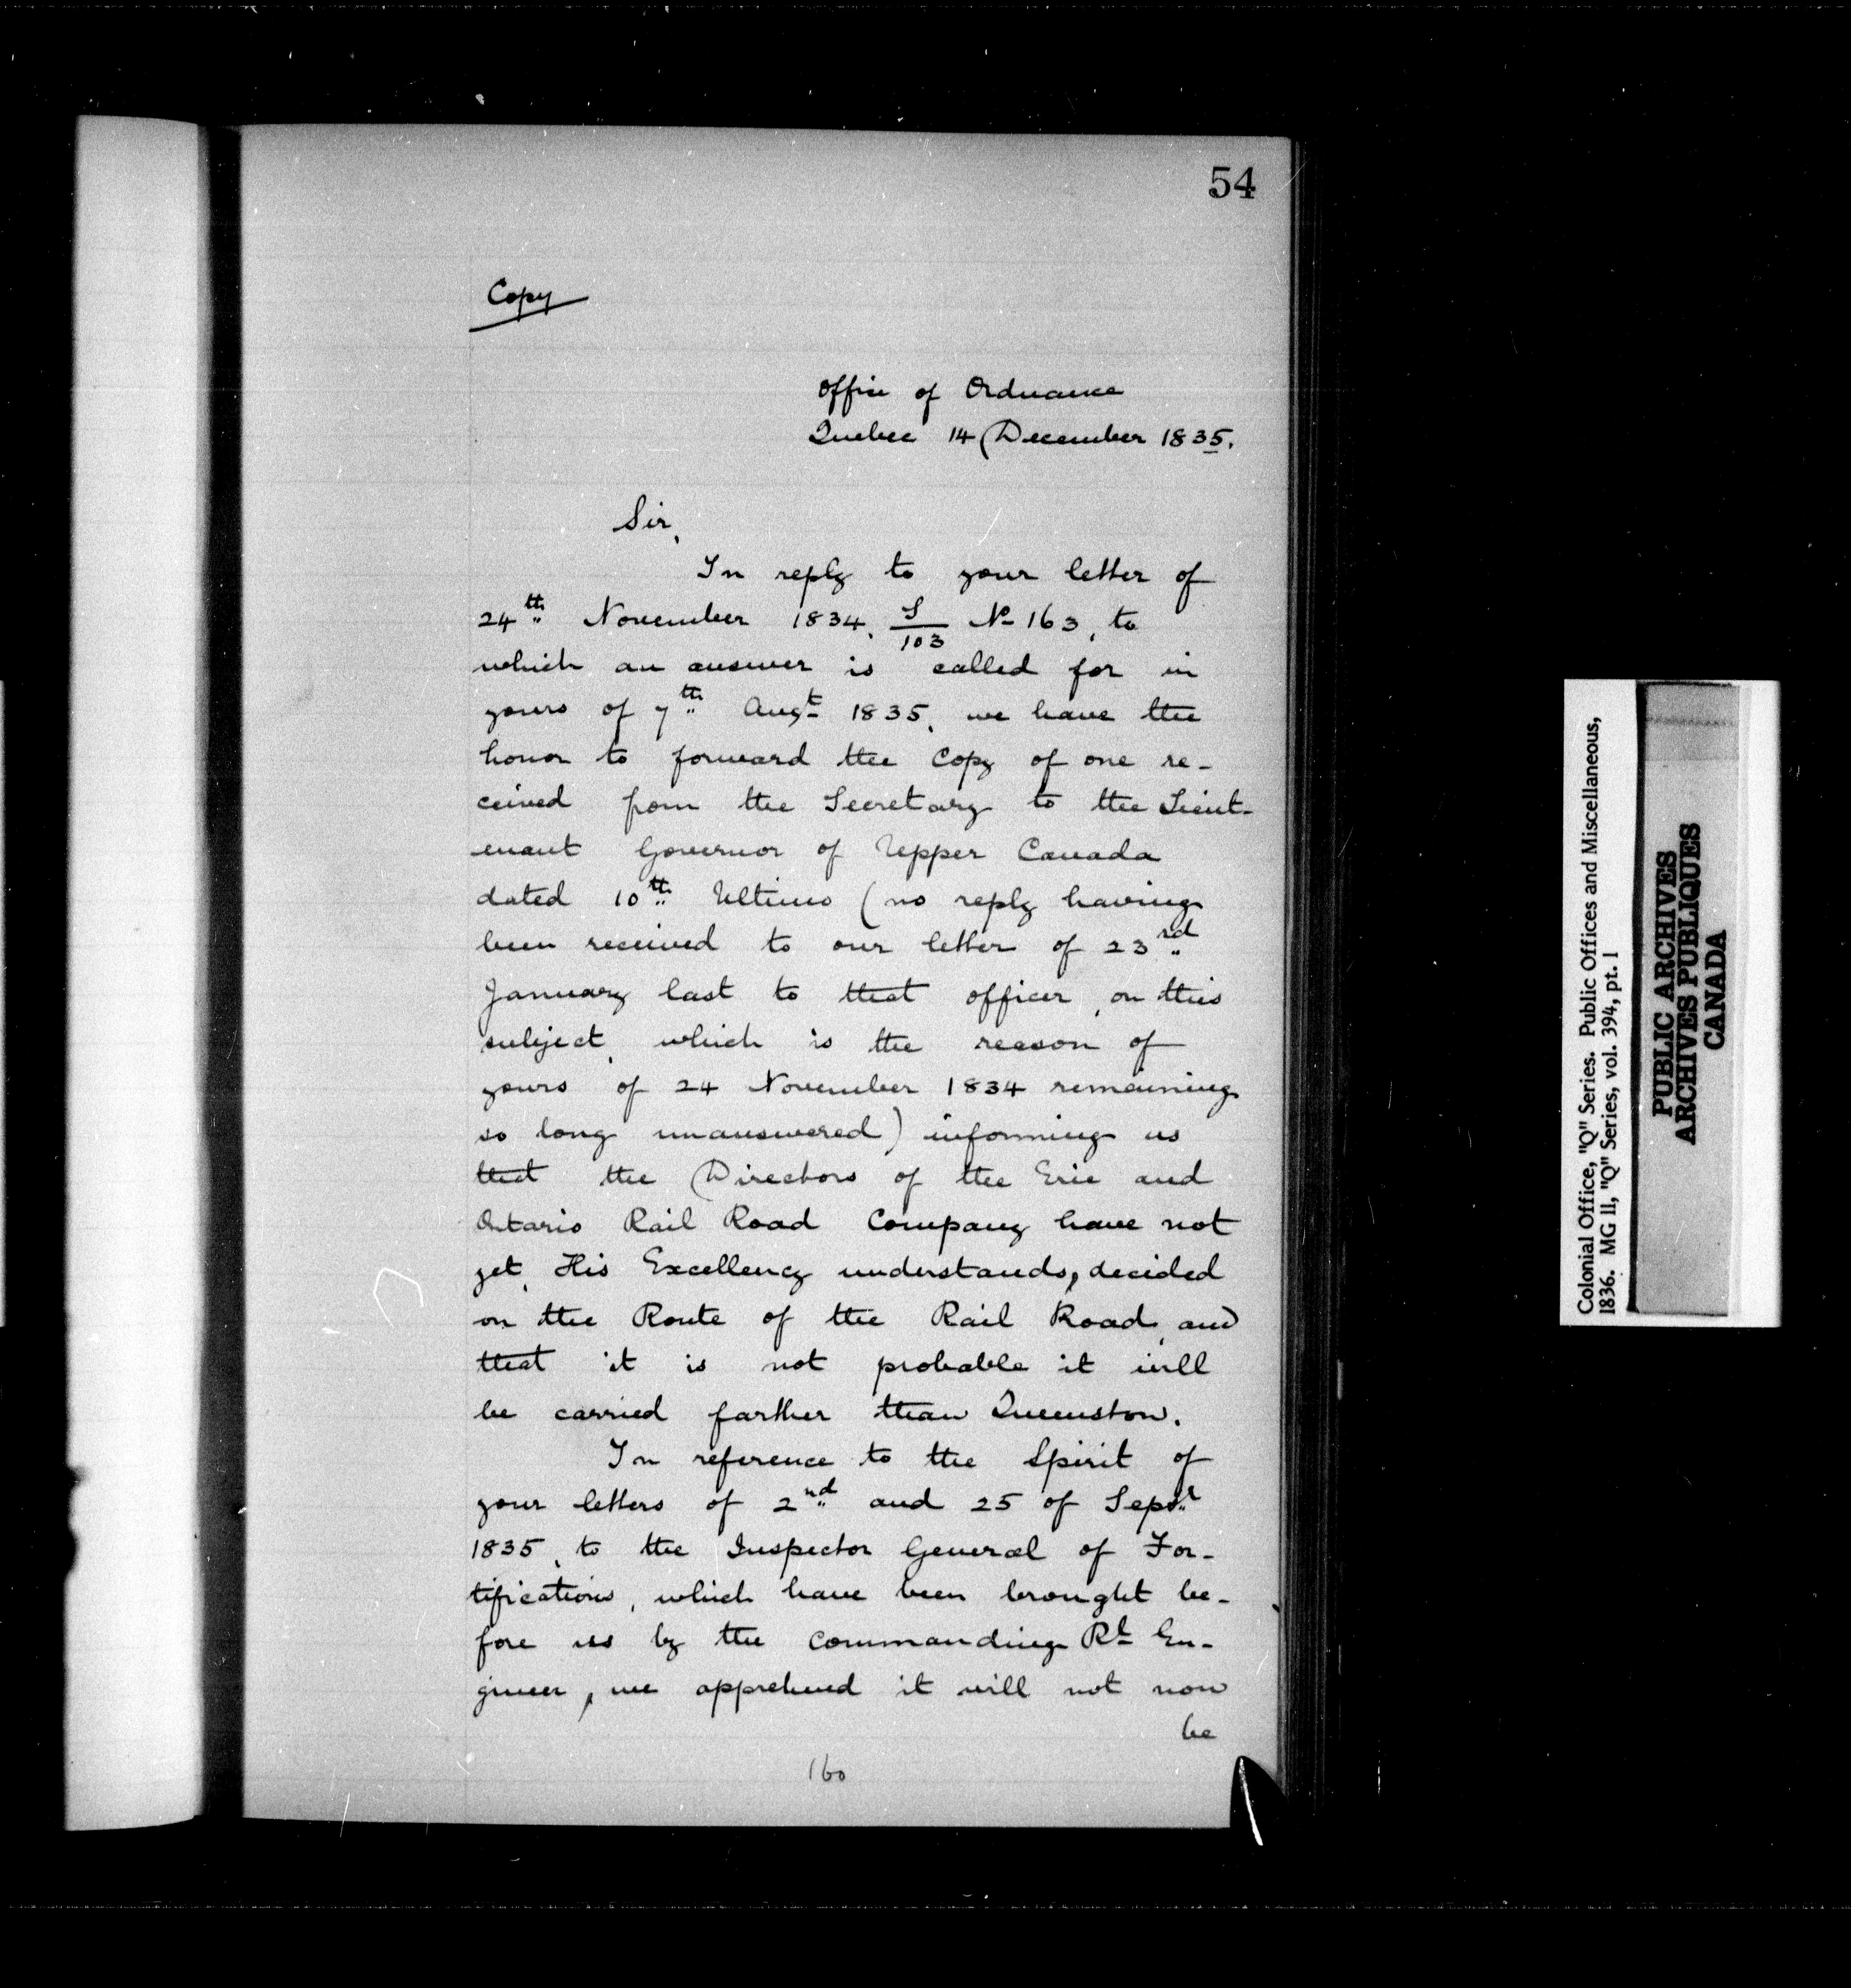 54
Copy
Office of Ordnance
Quebec 14 December 1835.
Sir,
In reply to your letter of
24th November 1834, S/103 No 163, to
which an answer is called for in
yours of 7th Augt 1835, we have the
honor to forward the Copy of one re-
ceived from the Secretary to the Lieut-
enant Governor of Upper Canada
dated 10th Ultimo (no reply having
been received to our letter of 23rd
January last to that officer, on this
subject, which is the reason of
yours of 24 November 1834 remaining
so long unanswered) informing us
that the Directors of the Erie and
Ontario Rail Road Company have not
yet, His Excellency understands, decided
on the Route of the Rail Road, and
that it is not probable it will
be carried farther than Queenston.
In reference to the Spirit of
your letters of 2nd and 25 of Sept
1835, to the Inspector General of For-
tifications, which have been brought be-
fore us by the Commanding Rl En-
gineer, we apprehend it will not now
be
160
Colonial Office, "Q" Series. Public Offices and Miscellaneous,
1836. MG 11, "Q" Series, vol. 394, pt. 1
PUBLIC ARCHIVES
ARCHIVES PUBLIQUES
CANADA